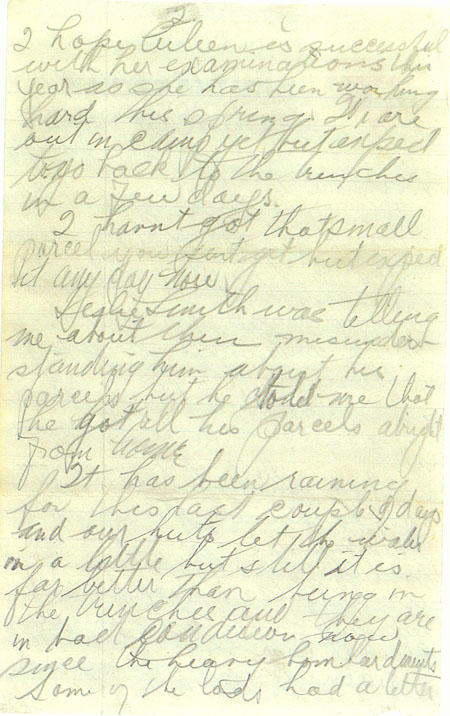 2
I hope Eileen is successful
with her examinations this
year as she has been working
hard this spring. We are
out in camp yet but expect
to go back to the trenches
in a few days.
I havnt got that small
parcel you sent yet but expect
it any day now
Leslie Smith was telling
me about them misunder-
standing him about his
parcels but he told me that
he got all his parcels alright
from home
It has been raining
for this last couple of days
and our huts let the water
in a little but still it is
far better than being in
the trenches and they are
in bad condition now
since the heavy bombardments
Some of the lads had a letter